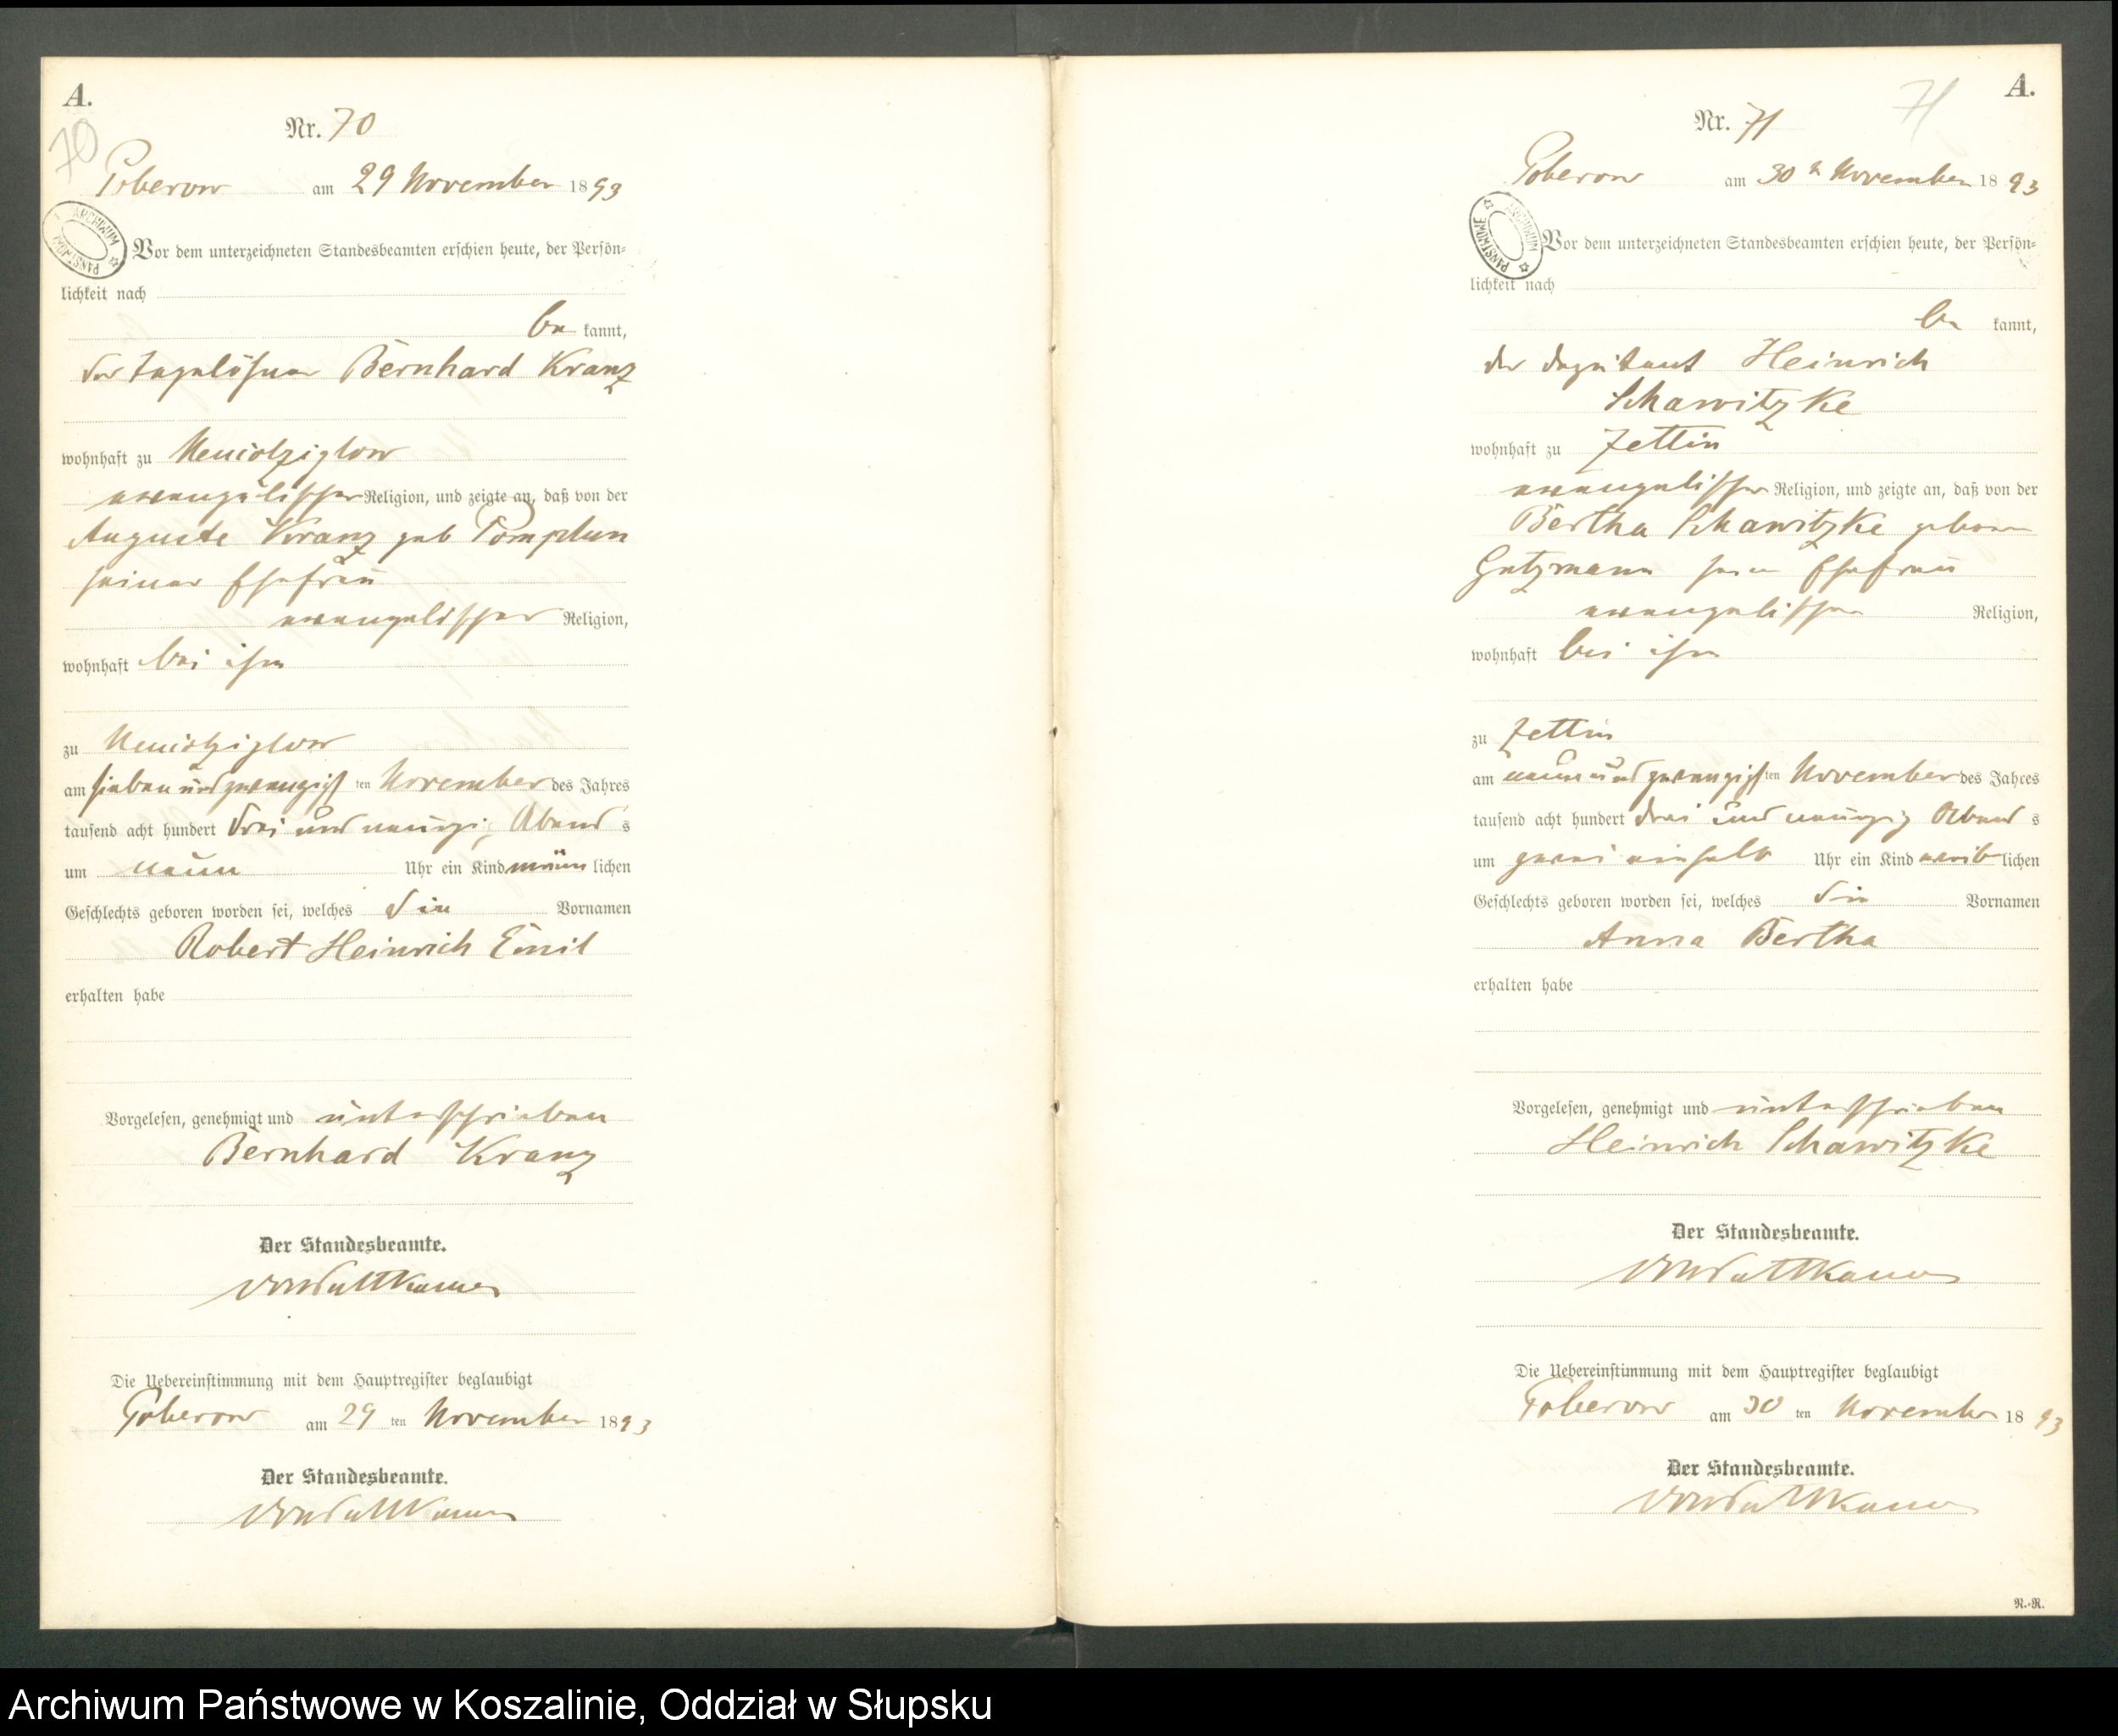 A.
70
Nr. 70
Poberow am 29 November 1893
ARCHIWUM PAŃSTWOWE
Vor dem unterzeichneten Standesbeamten erschien heute, der Persön-
lichkeit nach
be kannt,
der Tagelöhner Bernhard Kranz
wohnhaft zu
evangelischer Religion, und zeigte an, daß von der
Auguste Kranz geb Pomplun
seiner Ehefrau
evangelischer Religion,
wohnhaft bei ihm
zu
am sieben und zwanzigsten November des Jahres
tausend acht hundert drei und neunzig Abend s
um neun Uhr ein Kind männlichen
Geschlechts geboren worden sei, welches die Vornamen
Robert Heinrich Emil
erhalten habe
Vorgelesen, genehmigt und unterschrieben
Bernhard Kranz
Der Standesbeamte.
von Puttkamer
Die Uebereinstimmung mit dem Hauptregister beglaubigt
Poberow am 29 ten November 1893
Der Standesbeamte.
von Puttkamer
A.
71
Nr. 71
Poberow am 30 November 1893
ARCHIWUM PAŃSTWOWE
Vor dem unterzeichneten Standesbeamten erschien heute, der Persön-
lichkeit nach
be kannt,
der Deputant Heinrich
Schawitzke
wohnhaft zu Zettin
evangelischer Religion, und zeigte an, daß von der
Bertha Schawitzke geborene
Gutzmann seiner Ehefrau
evangelischer Religion,
wohnhaft bei ihm
zu Zettin
am neun und zwanzigsten November des Jahres
tausend acht hundert drei und neunzig Abend s
um zwei einhalb Uhr ein Kind weiblichen
Geschlechts geboren worden sei, welches die Vornamen
Anna Bertha
erhalten habe
Vorgelesen, genehmigt und unterschrieben
Heinrich Schawitzke
Der Standesbeamte.
von Puttkamer
Die Uebereinstimmung mit dem Hauptregister beglaubigt
Poberow am 30 ten November 1893
Der Standesbeamte.
von Puttkamer
R.-R.
Archiwum Państwowe w Koszalinie, Oddział w Słupsku